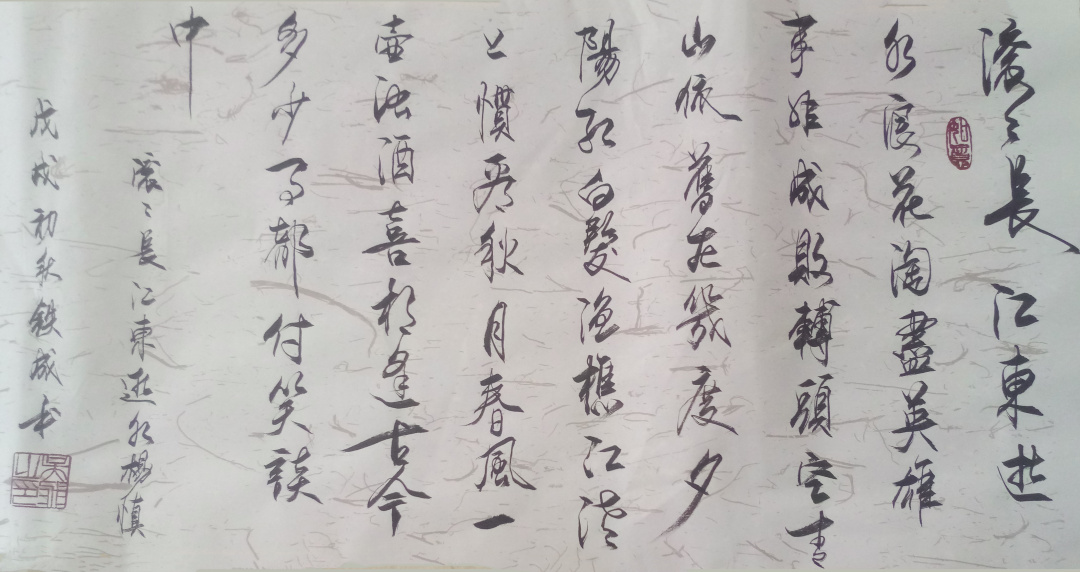 滚〻長江東逝
水浪花淘盡英雄
是非成敗轉頭空青
山依舊在幾度夕
陽紅白髮漁樵江渚
上慣看秋月春風一
壺濁酒喜相逢古今
多少事都付笑談
中
滚〻長江東逝水楊慎
戊戌初秋鉄成书